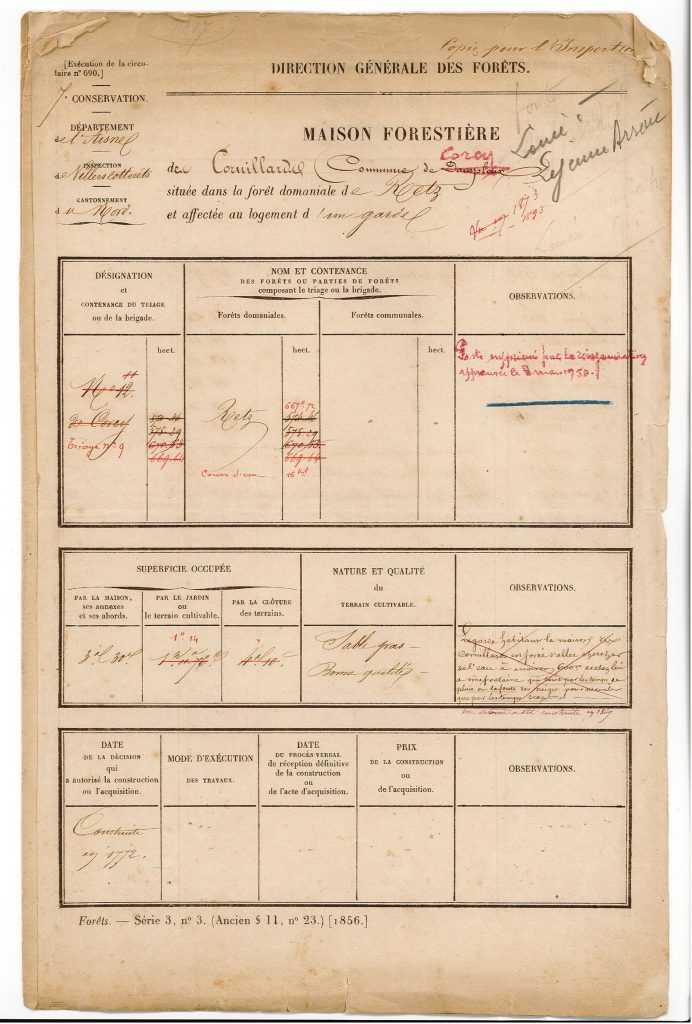 Copie pour l'Inspection
[Exécution de la circu-
laire n° 690.]
DIRECTION GÉNÉRALE DES FORÊTS.
7e CONSERVATION.
DÉPARTEMENT
de l'Aisne
INSPECTION
de Villers Cotterets
CANTONNEMENT
du Nord
MAISON FORESTIÈRE
Corcy
de Corvillarde (Commune de
située dans la forêt domaniale de Retz
et affectée au logement d'un garde
Louée à
Lejeune
1873
1893
DÉSIGNATION
et
CONTENANCE DU TRIAGE
ou de la brigade.
NOM ET CONTENANCE
DES FORÊTS OU PARTIES DE FORÊTS
composant le triage ou la brigade.
Forêts domaniales.
Forêts communales.
OBSERVATIONS.
hect.
hect.
hect.
11
N° 12
de Corcy
Triage n° 9
578.29
670.83
669.64
Retz
667h.72
578.29
670.83
669.64
16 kil
"
"
Poste supprimé par la réorganisation
approuvée le 8 mars 1930.
SUPERFICIE OCCUPÉE
PAR LA MAISON,
ses annexes
et ses abords.
PAR LE JARDIN
ou
le terrain cultivable.
PAR LA CLÔTURE
des terrains.
NATURE ET QUALITÉ
du
TERRAIN CULTIVABLE.
OBSERVATIONS.
3a 30c
Sable gras
Bonne qualité
Le garde habitant la maison de
forcé d'aller chercher
de l'eau à environ
à une fontaine qui
pluie ou la fonte des neiges
par les temps
Une citerne a été construite en 1869
DATE
DE LA DÉCISION
qui
a autorisé la construction
ou l'acquisition.
MODE D'EXÉCUTION
DES TRAVAUX.
DATE
DU PROCÈS-VERBAL
de réception définitive
de la construction
ou
de l'acte d'acquisition.
PRIX
DE LA CONSTRUCTION
ou
de l'acquisition.
OBSERVATIONS.
Construite
en 1772.
Forêts. — Série 3, n° 3. (Ancien § 11, n° 23.) [1856.]